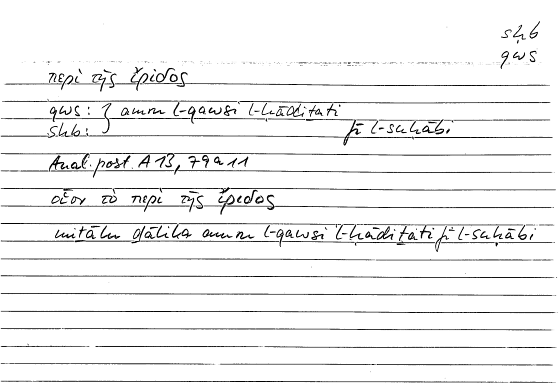 sḥb
qws
περὶ τῆς ἴριδος
qws: } amru l-qawsi l-ḥādiṯati
sḥb: } fī l-saḥābi
Anal. post. A 13, 79a11
οἷον τὸ περὶ τῆς ἴριδος
miṯālu ḏālika amru l-qawsi l-ḥādiṯati fī l-saḥābi